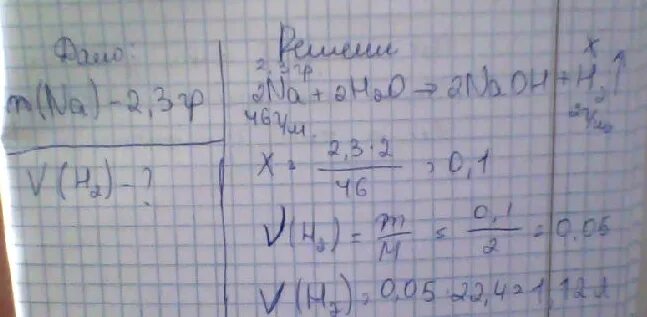 Дано:
m(Na) - 2,3 гр
V(H₂) - ?
Решени
2,3 гр x
2Na + 2H₂O → 2NaOH + H₂↑
46
x = 2,3·2 / 46 = 0,1
ν(H₂) = m/M = 0,1/2 = 0,05
V(H₂) = 0,05·22,4 = 1,12 л